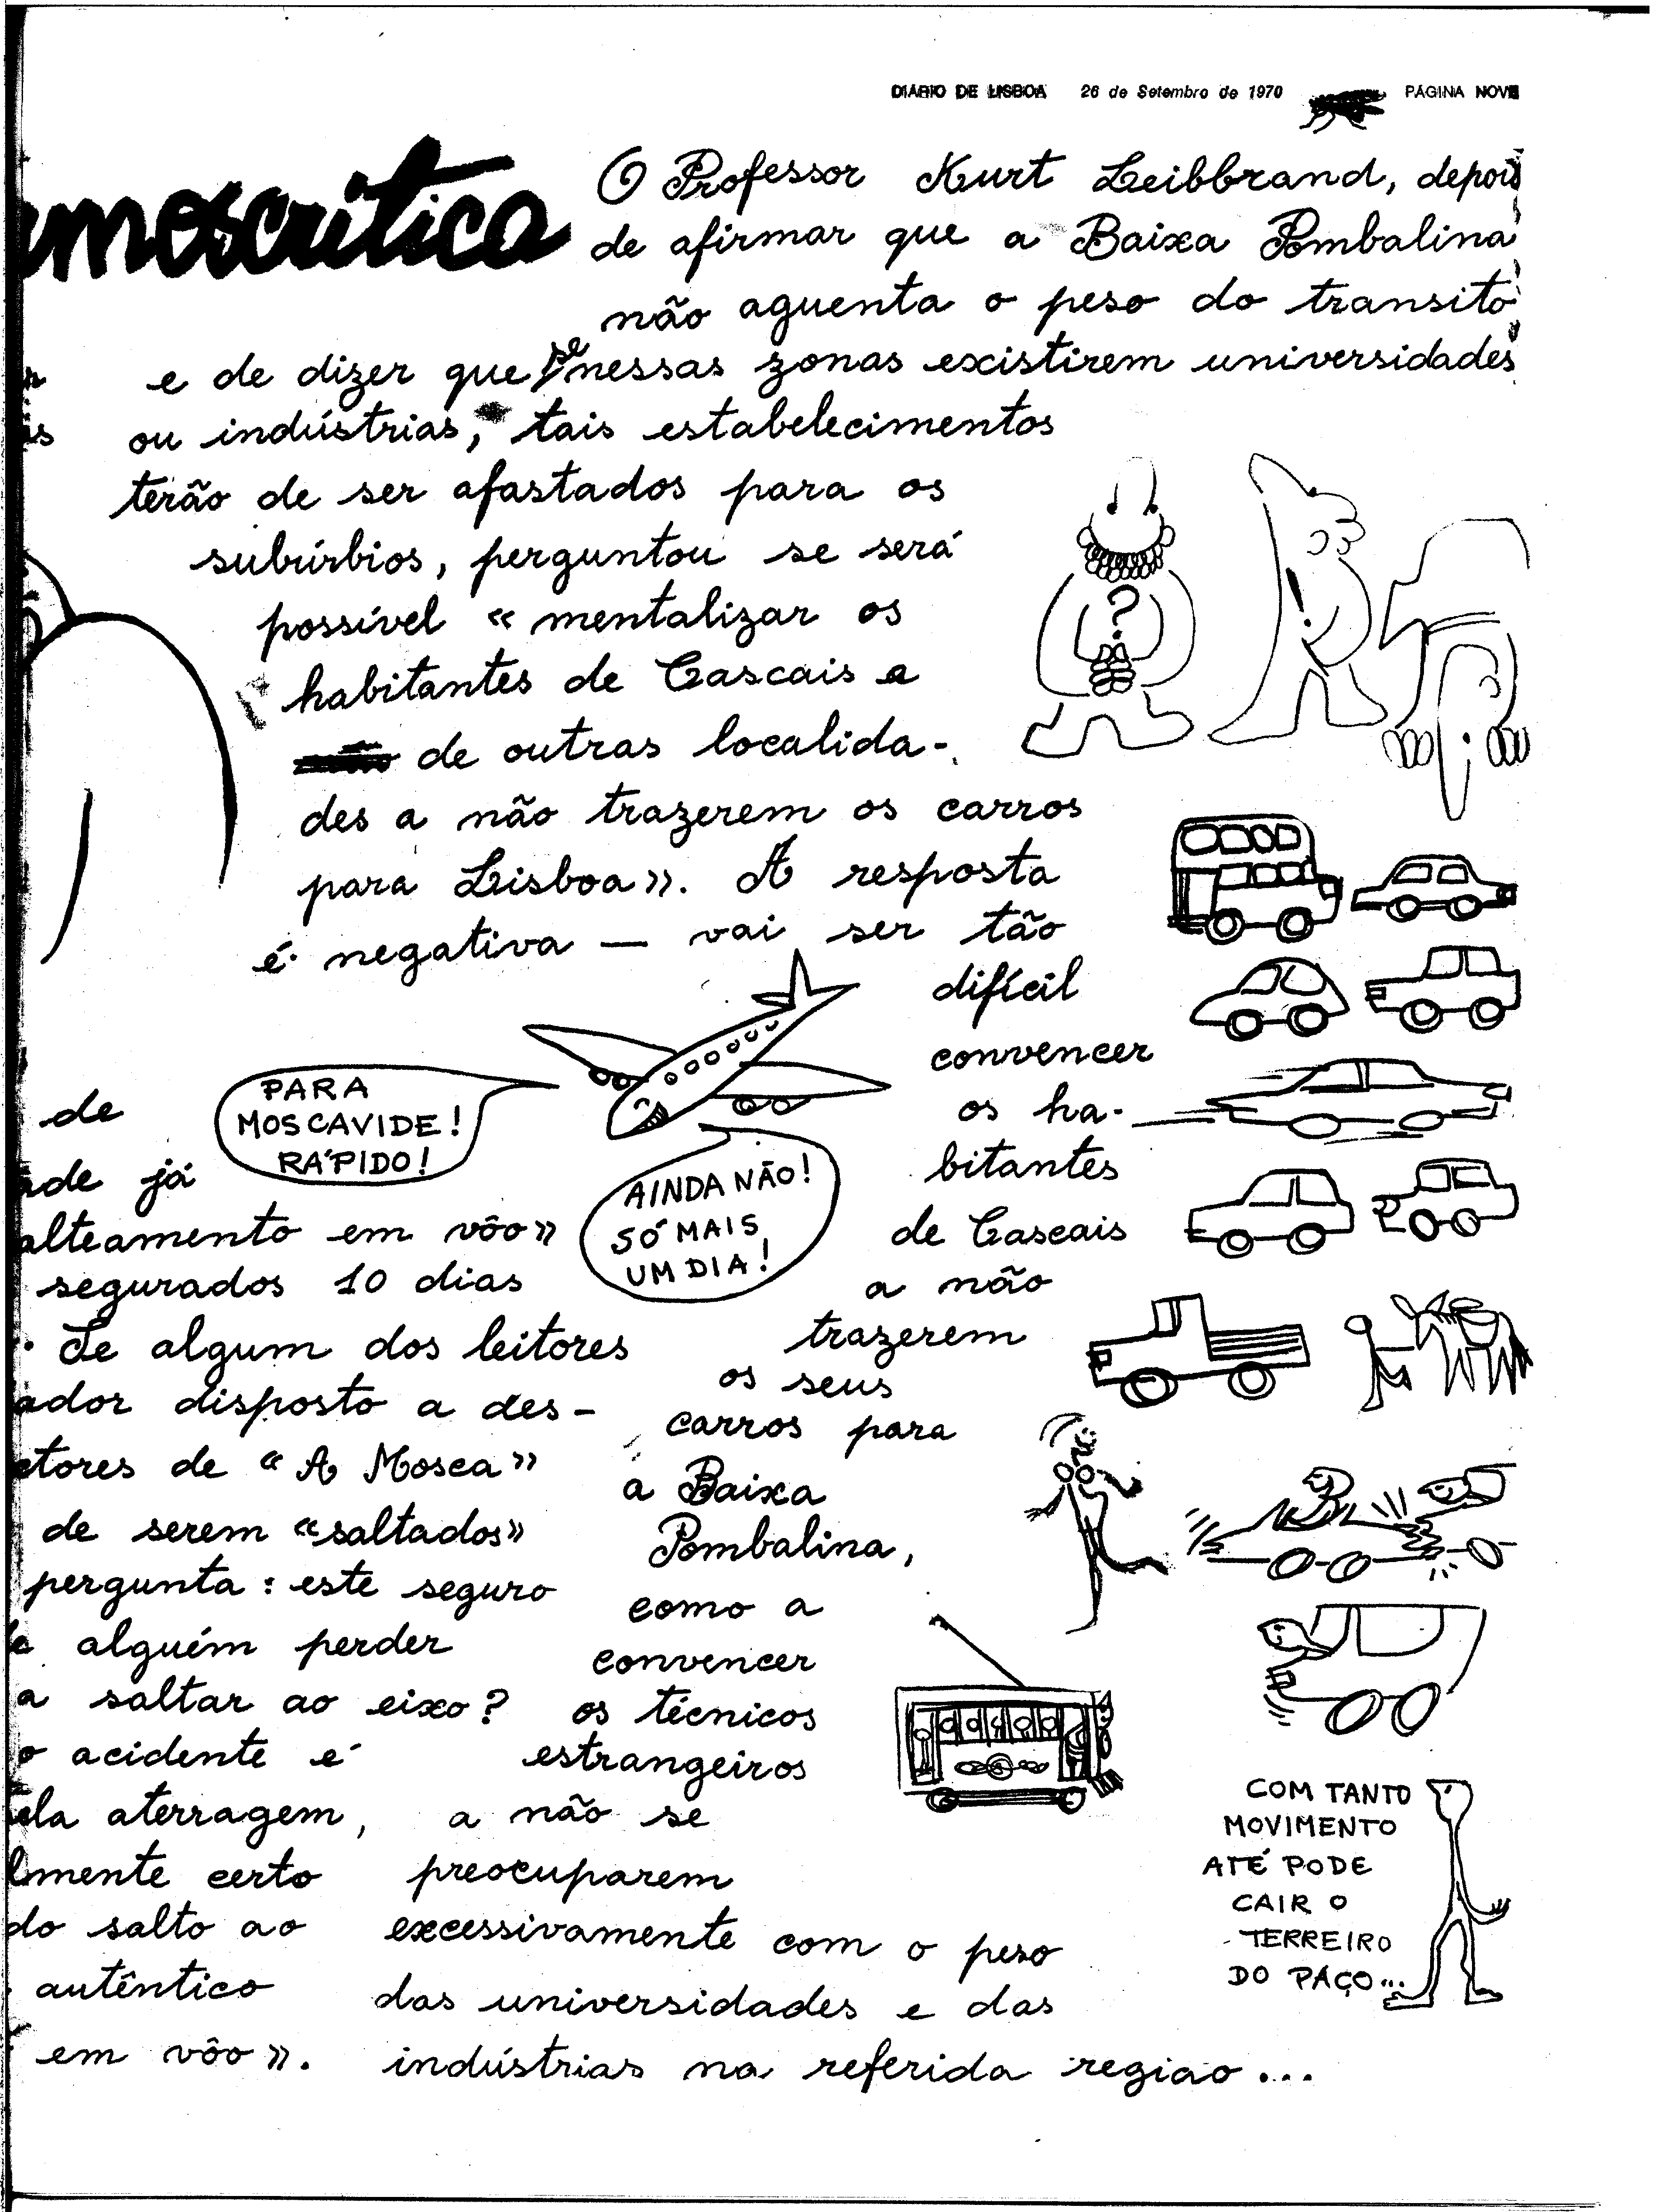 DIARIO DE LISBOA 26 de Setembro de 1970 PÁGINA NOVE
moscritica
O Professor Kurt Leibbrand, depois
de afirmar que a Baixa Pombalina
não aguenta o peso do transito
e de dizer que se nessas zonas existirem universidades
ou indústrias, tais estabelecimentos
terão de ser afastados para os
subúrbios, perguntou se será
possível « mentalizar os
habitantes de Cascais e
de outras localida-
des a não trazerem os carros
para Lisboa». A resposta
é negativa — vai ser tão
difícil
convencer
os ha-
bitantes
de Cascais
a não
trazerem
os seus
carros para
a Baixa
Pombalina,
como a
convencer
os técnicos
estrangeiros
a não se
preocuparem
excessivamente com o peso
das universidades e das
indústrias na referida regiao...
?
!
PARA
MOSCAVIDE!
RÁPIDO!
AINDA NÃO!
SÓ MAIS
UM DIA!
de
já
alteamento em vôo»
segurados 10 dias
. Se algum dos leitores
ador disposto a des-
tores de "A Mosca"
de serem «saltados»
pergunta: este seguro
alguém perder
a saltar ao eixo?
o acidente é
ela aterragem,
lmente certo
do salto ao
autêntico
em vôo».
COM TANTO
MOVIMENTO
ATÉ PODE
CAIR O
TERREIRO
DO PAÇO...